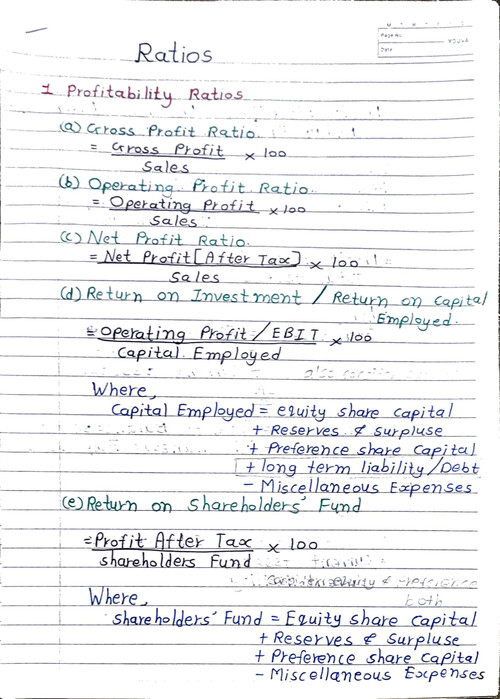 Page No.
Date
YOUVA
Ratios
1 Profitability Ratios
(a) Gross Profit Ratio
= Gross Profit × 100
Sales
(b) Operating Profit Ratio
= Operating Profit × 100
Sales
(c) Net Profit Ratio
= Net Profit [After Tax] × 100
Sales
(d) Return on Investment / Return on Capital
Employed.
= Operating Profit / EBIT × 100
Capital Employed
Where,
Capital Employed = equity share capital
+ Reserves & Surpluse
+ Preference share Capital
+ long term liability/Debt
- Miscellaneous Expenses
(e) Return on Shareholders' Fund
= Profit After Tax × 100
shareholders Fund
equity & Preference
both
Where,
shareholders' Fund = Equity share capital
+ Reserves & Surpluse
+ Preference share Capital
- Miscellaneous Expenses